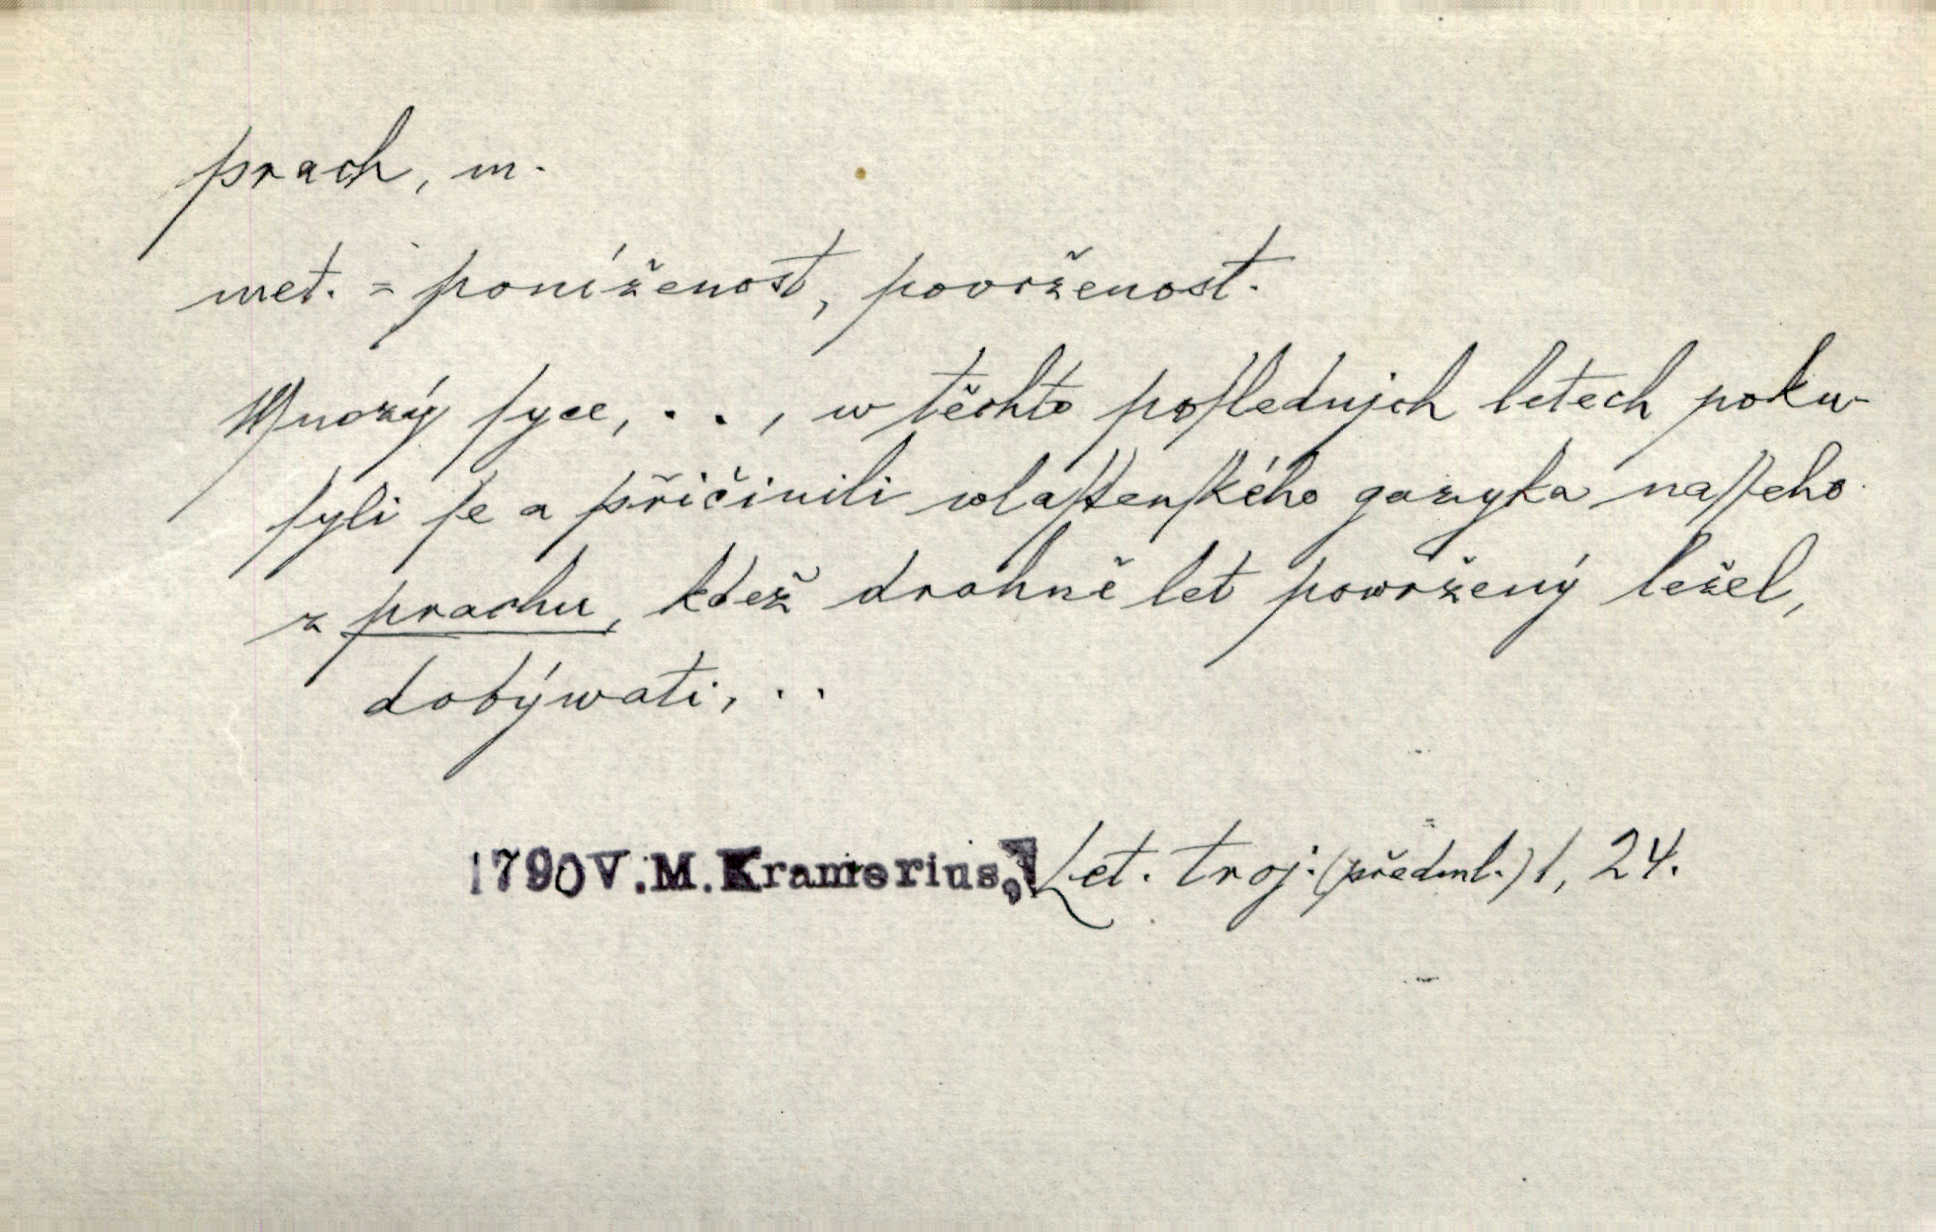 prach, m.
met. = poníženost, povrženost.
Mnozý ſyce, . . , w těchto poſlednjch letech poku-
ſyli ſe a přičinili wlaſtenſkého gazyka naſſeho
z prachu, kdež drahně let powržený ležel,
dobýwati, . .
1790 V.M.Kramerius, Let. troj.(předml.) 1, 24.